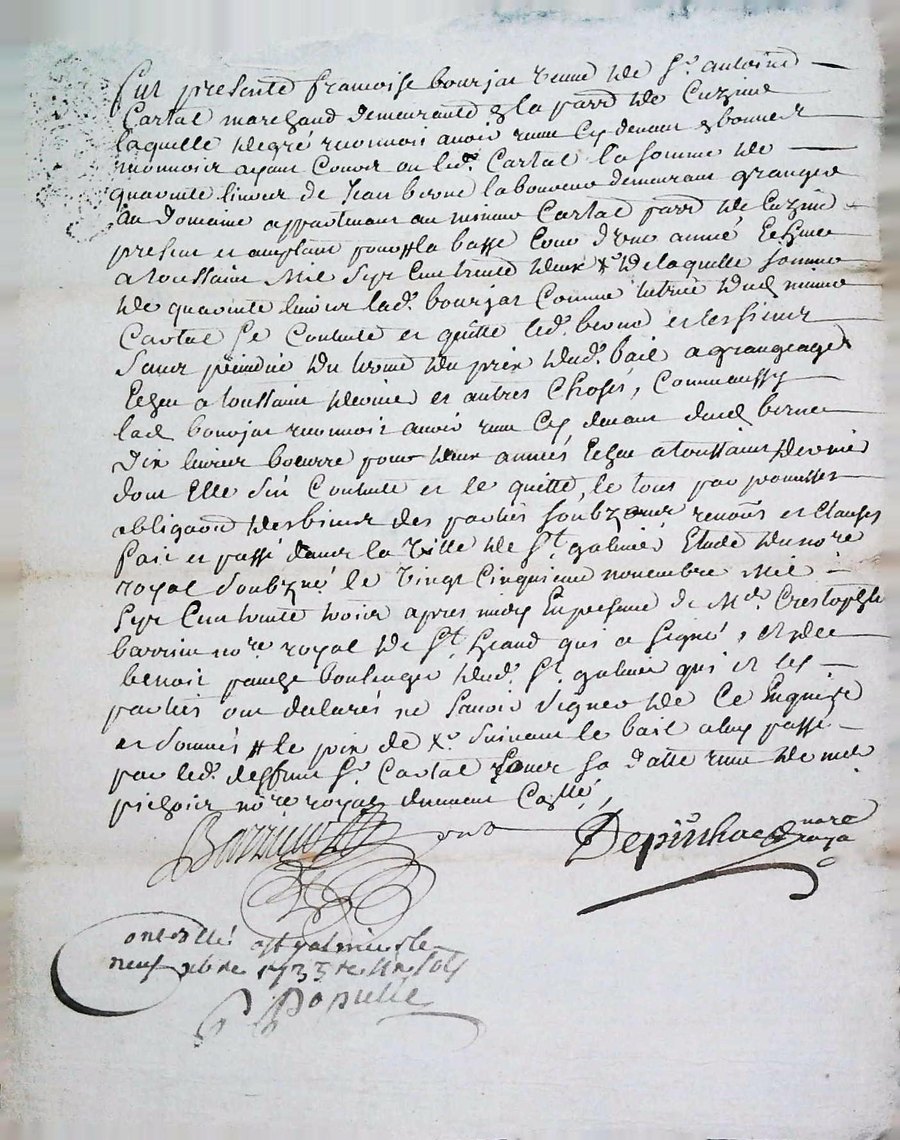 Fut presente francoise bourjat veuve de Sr. antoine
Cartal marchand demeurante a la parr. de Cuzieu
laquelle de gré reconnoit avoir reçu cy devant
monnoie ayant Cours ou led. Cartal la somme de
quarante livres de Jean berne laboureur demeurant granger
du domaine appartenant au mineur Cartal parr. de Cuzieu
present et acceptant pour la basse Cour d'une année Echue
a toussaint Mil Sept Cent trente deux de laquelle somme
de quarante livres lad. bourjat Comme tutrice dud. mineur
Cartal se Contente et quitte led. berne et les siens
sans prejudice du terme du prix dud. bail a grangeage
Echu a toussaint dernier et autres Choses, Comm'aussy
lad. bourjat reconnoit avoir reçu cy devant dud. berne
Dix livres beurre pour deux années Echue a toussaint dernier
dont Elle s'en Contente et le quitte, le tout par promesses
obligaon des biens des parties renons et Clauses
fait et passé dans la Ville de St. galmier Etude du nore
royal soubzné le vingt Cinquieme novembre Mil
Sept Cent trente trois apres midy En presence de Me. Crestophle
barrieu nore. royal de St. heand qui a signé, et de
benoit boulenger dud. St. galmier qui et les
parties ont declarés ne savoir signer de ce Enquise
et sommés # le prix de Xr. suivant le bail a luy passé
par led. deffunt Sr. Cartal sous sa datte reçu de me
pichoir nore royal
Barrieu
Depinhac nore roya
Controllé a St galmier le
neuf xbre 1733 re six sols
Populle